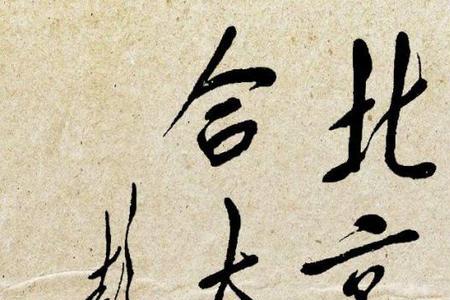 北京
合大